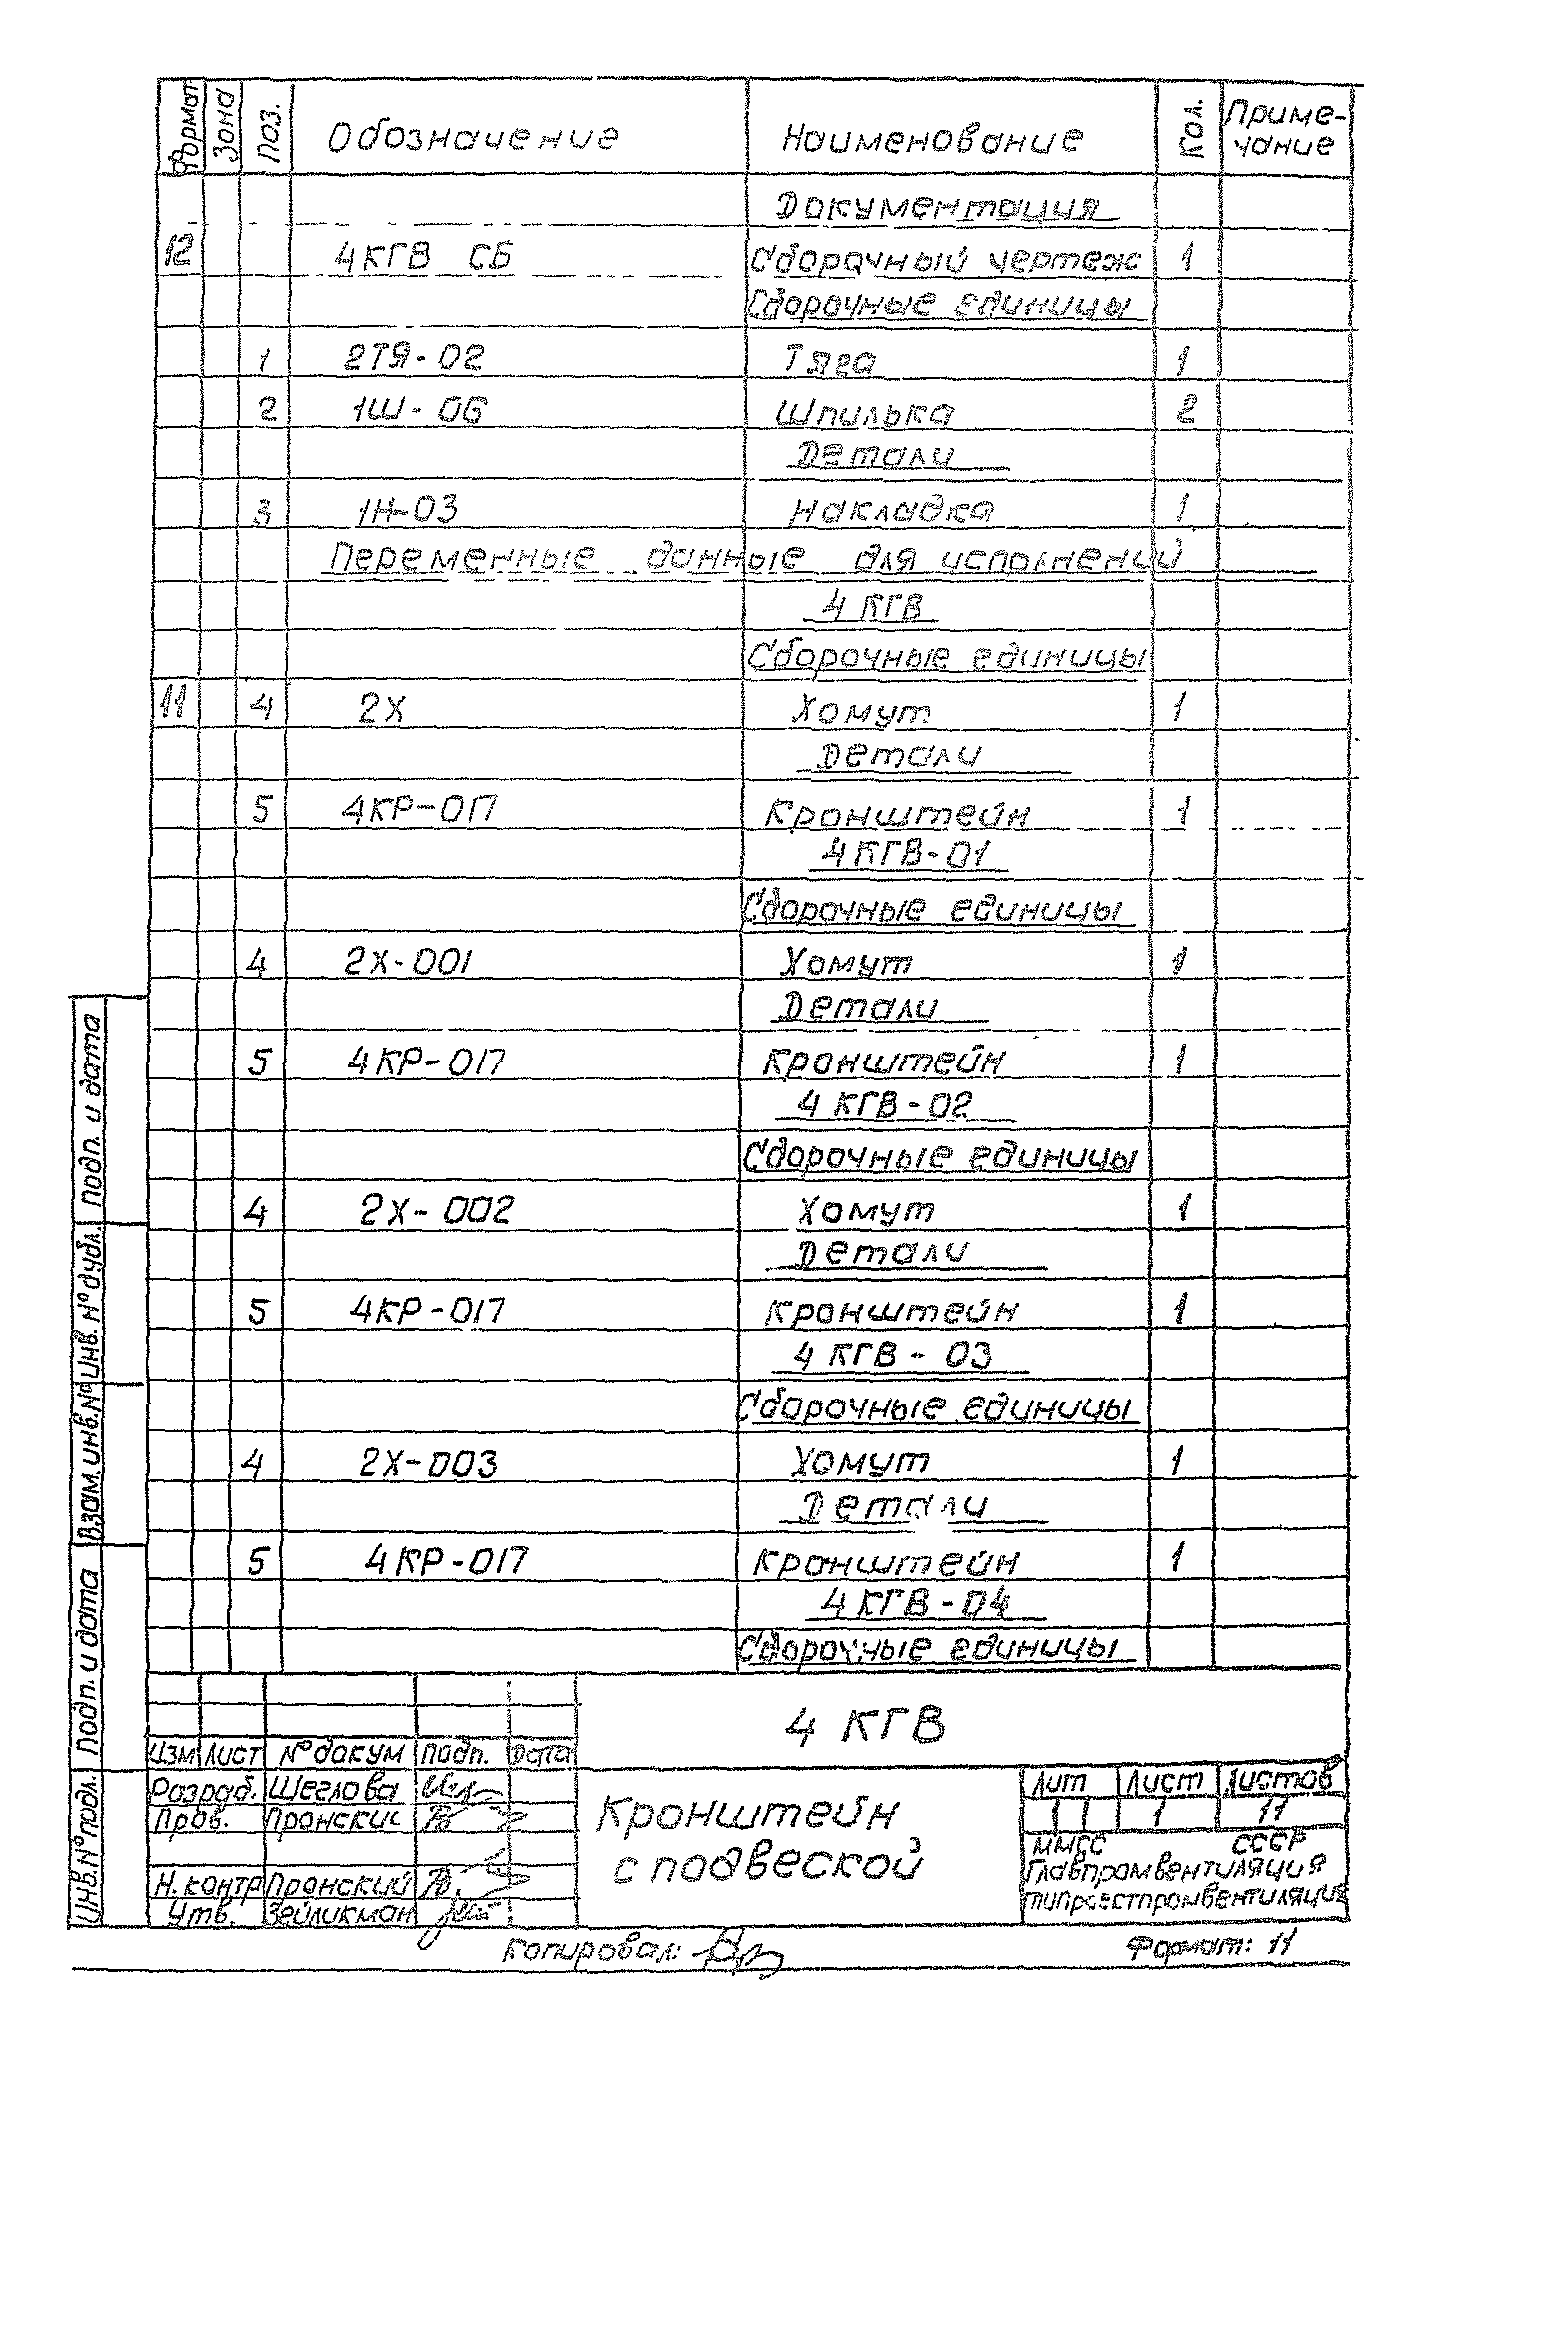 Формат Зона Поз. Обозначение Наименование Кол. Приме-
чание
Документация
12 4КГВ СБ Сборочный чертеж 1
Сборочные единицы
1 2ТЯ-02 Тяга 1
2 1Ш-06 Шпилька 2
Детали
3 1Н-03 Накладка 1
Переменные данные для исполнений
4 КГВ
Сборочные единицы
11 4 2Х Хомут 1
Детали
5 4КР-017 Кронштейн 1
4КГВ-01
Сборочные единицы
4 2Х-001 Хомут 1
Детали
5 4КР-017 Кронштейн 1
4 КГВ-02
Сборочные единицы
4 2Х-002 Хомут 1
Детали
5 4КР-017 Кронштейн 1
4 КГВ-03
Сборочные единицы
4 2Х-003 Хомут 1
Детали
5 4КР-017 Кронштейн 1
4 КГВ-04
Сборочные единицы
Инв. № подл. Подп. и дата Взам. инв. № Инв. № дубл. Подп. и дата
4 КГВ
Изм Лист № докум Подп. Дата
Разраб. Шеглова
Пров. Пронский
Н. контр Пронский
Утв. Зейликман
Кронштейн
с подвеской
Лит Лист Листов
1 11
ММСС СССР
Главпромвентиляция
Копировал:
Формат: 11